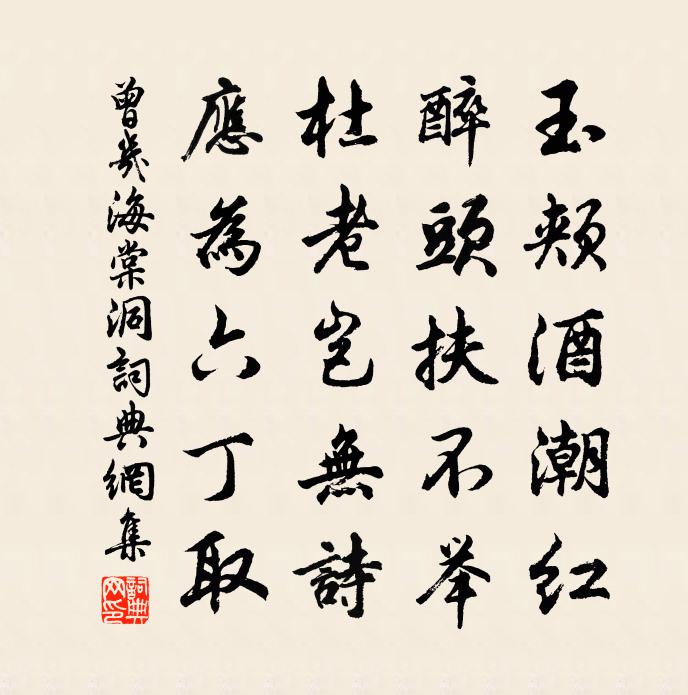 玉頰酒潮紅
醉頭扶不举
杜老岂無詩
應為六丁取
曾幾海棠洞詞典網集